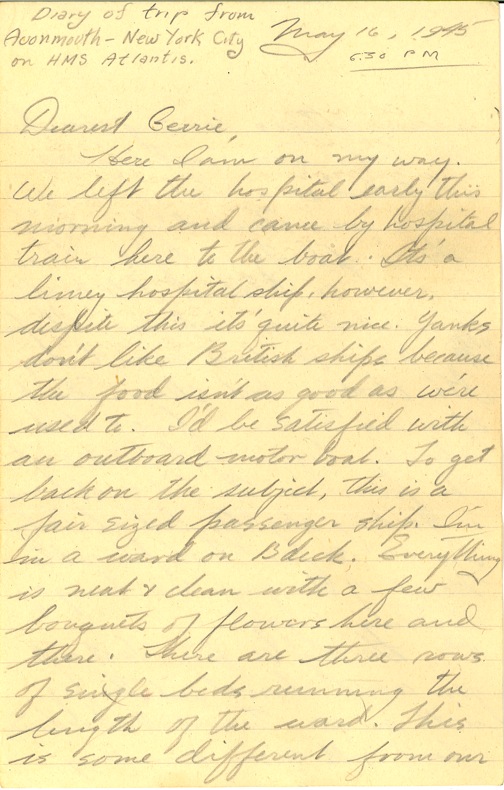 Diary of trip from
Avonmouth - New York City
on HMS Atlantis.
May 16, 1945
6:30 PM
Dearest Gerrie,
Here I am on my way.
We left the hospital early this
morning and came by hospital
train here to the boat. Its' a
limey hospital ship, however,
dispite this its' quite nice. Yanks
don't like British ships because
the food isn't as good as we're
used to. I'd be satisfied with
an outboard motor boat. To get
back on the subject, this is a
fair sized passenger ship. I'm
in a ward on B deck. Everything
is neat & clean with a few
bouquets of flowers here and
there. There are three rows
of single beds running the
length of the ward. This
is some different from our